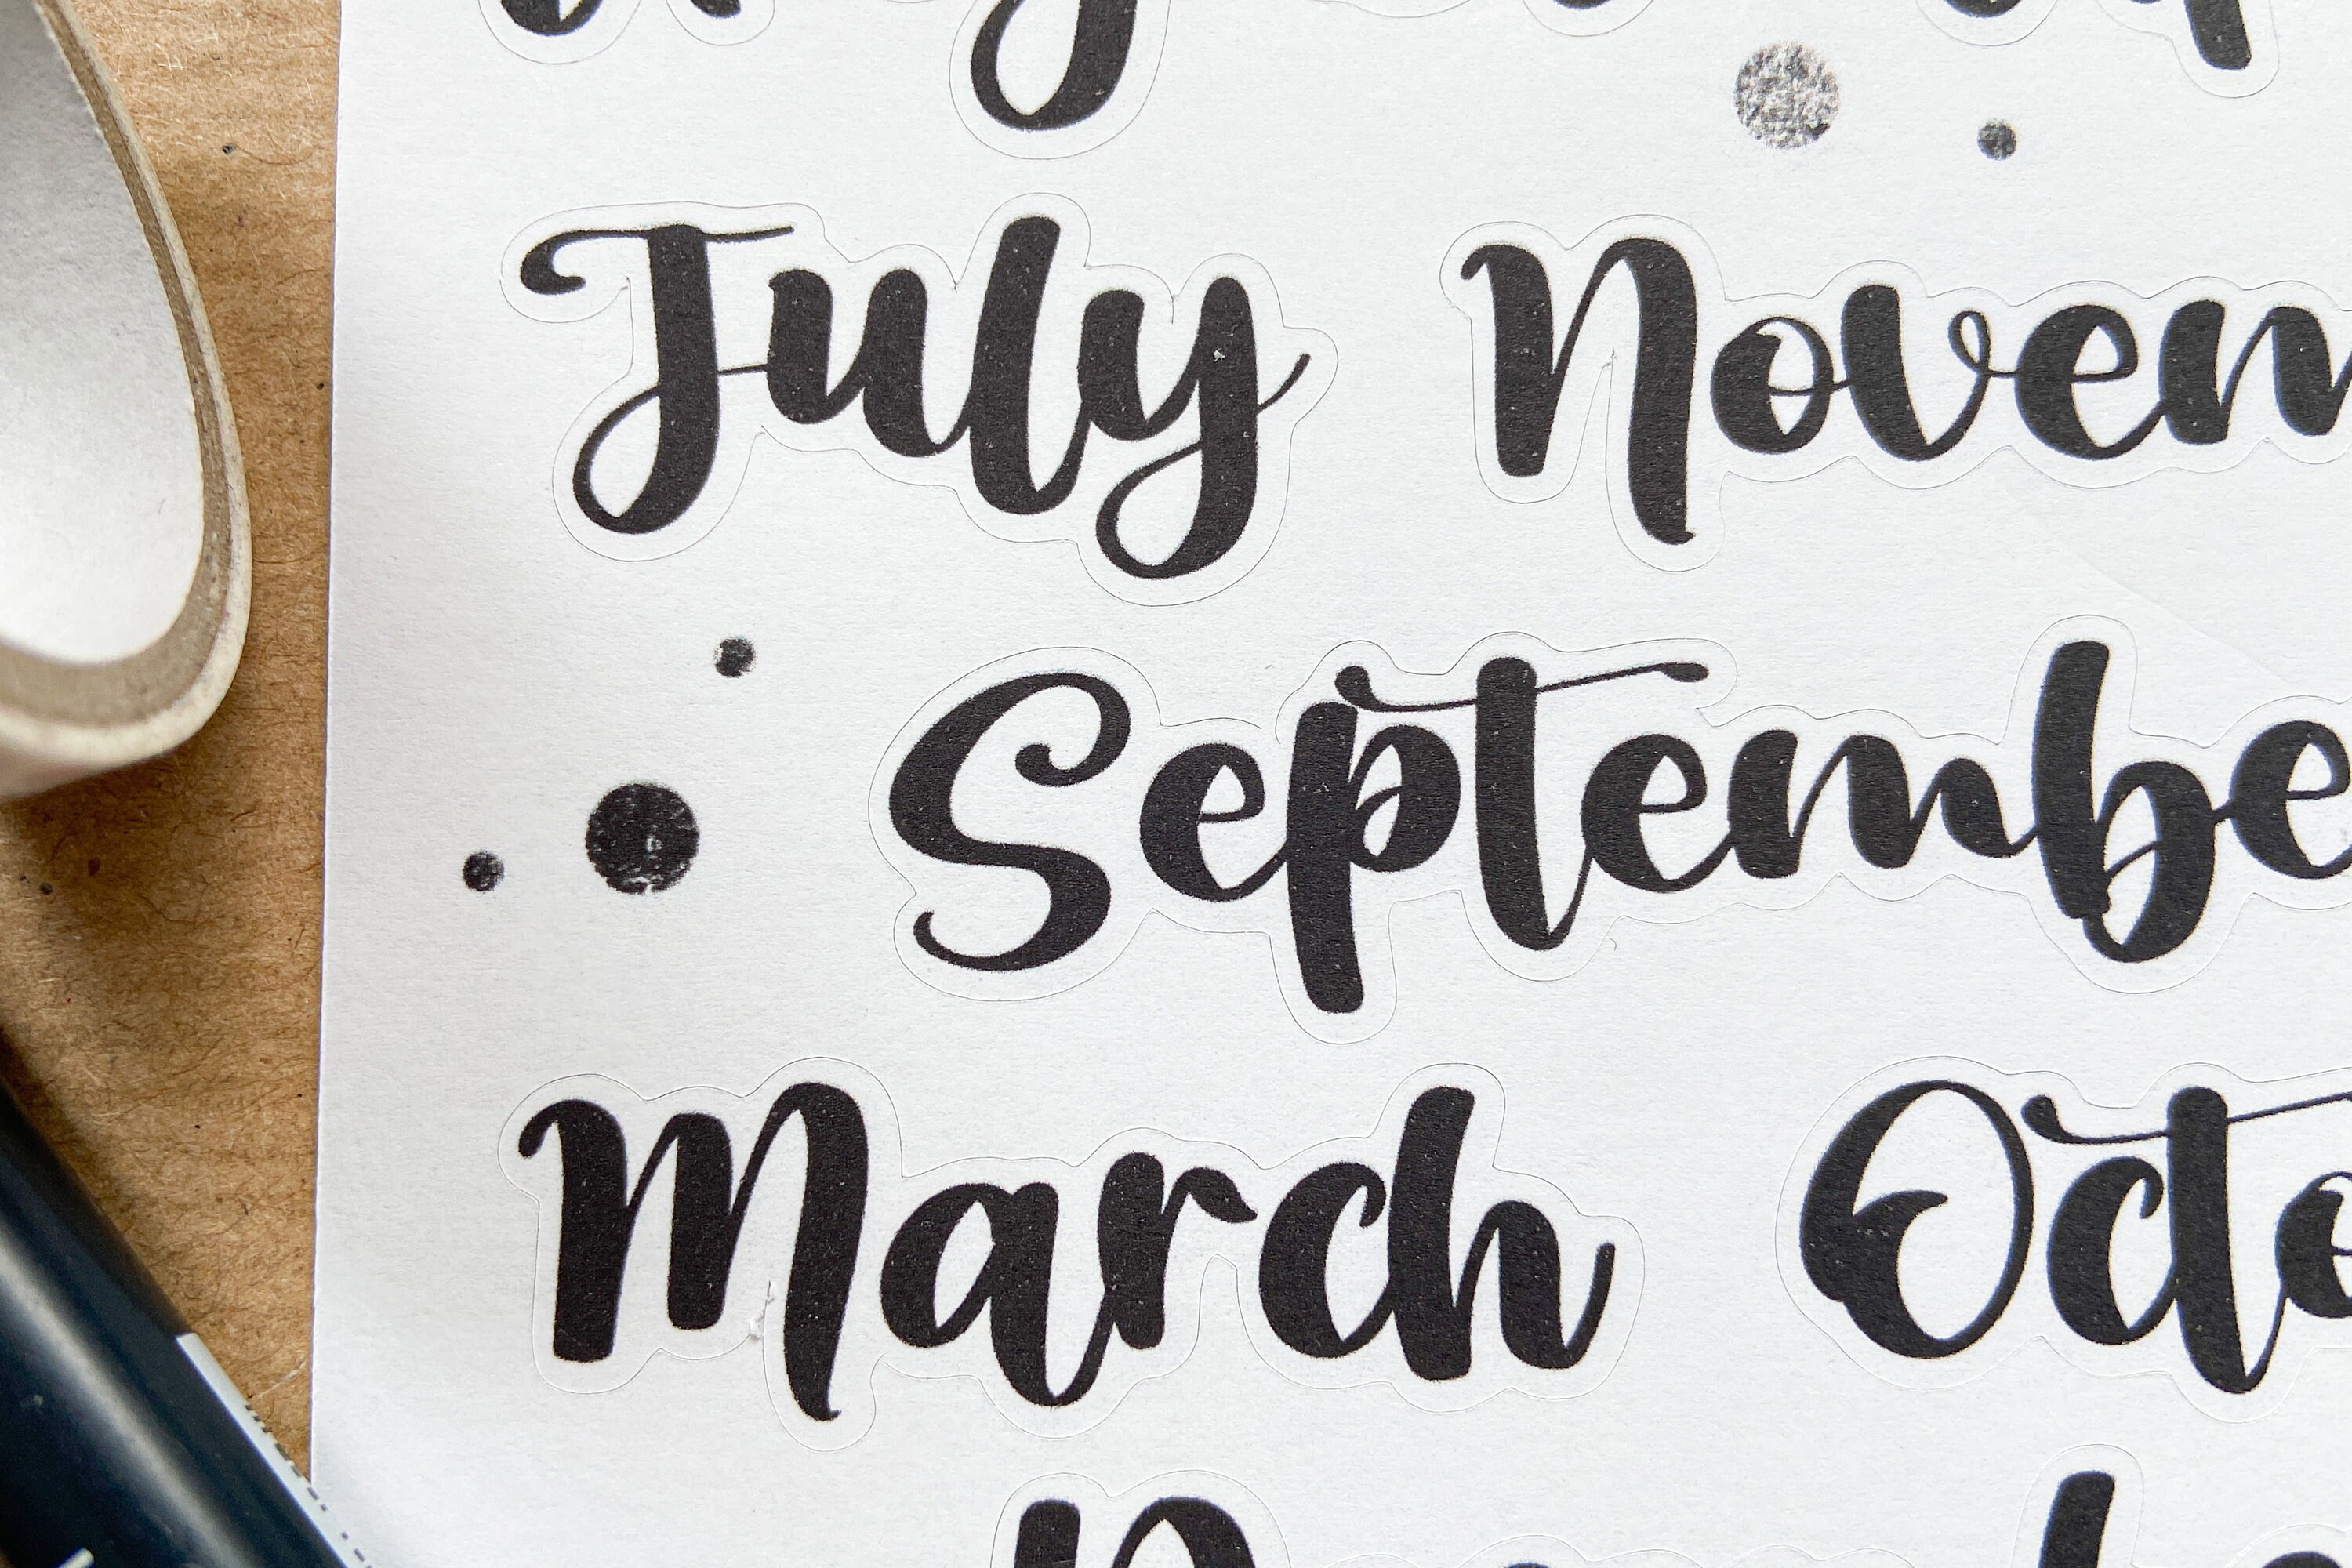 July Novem
September
March Octo